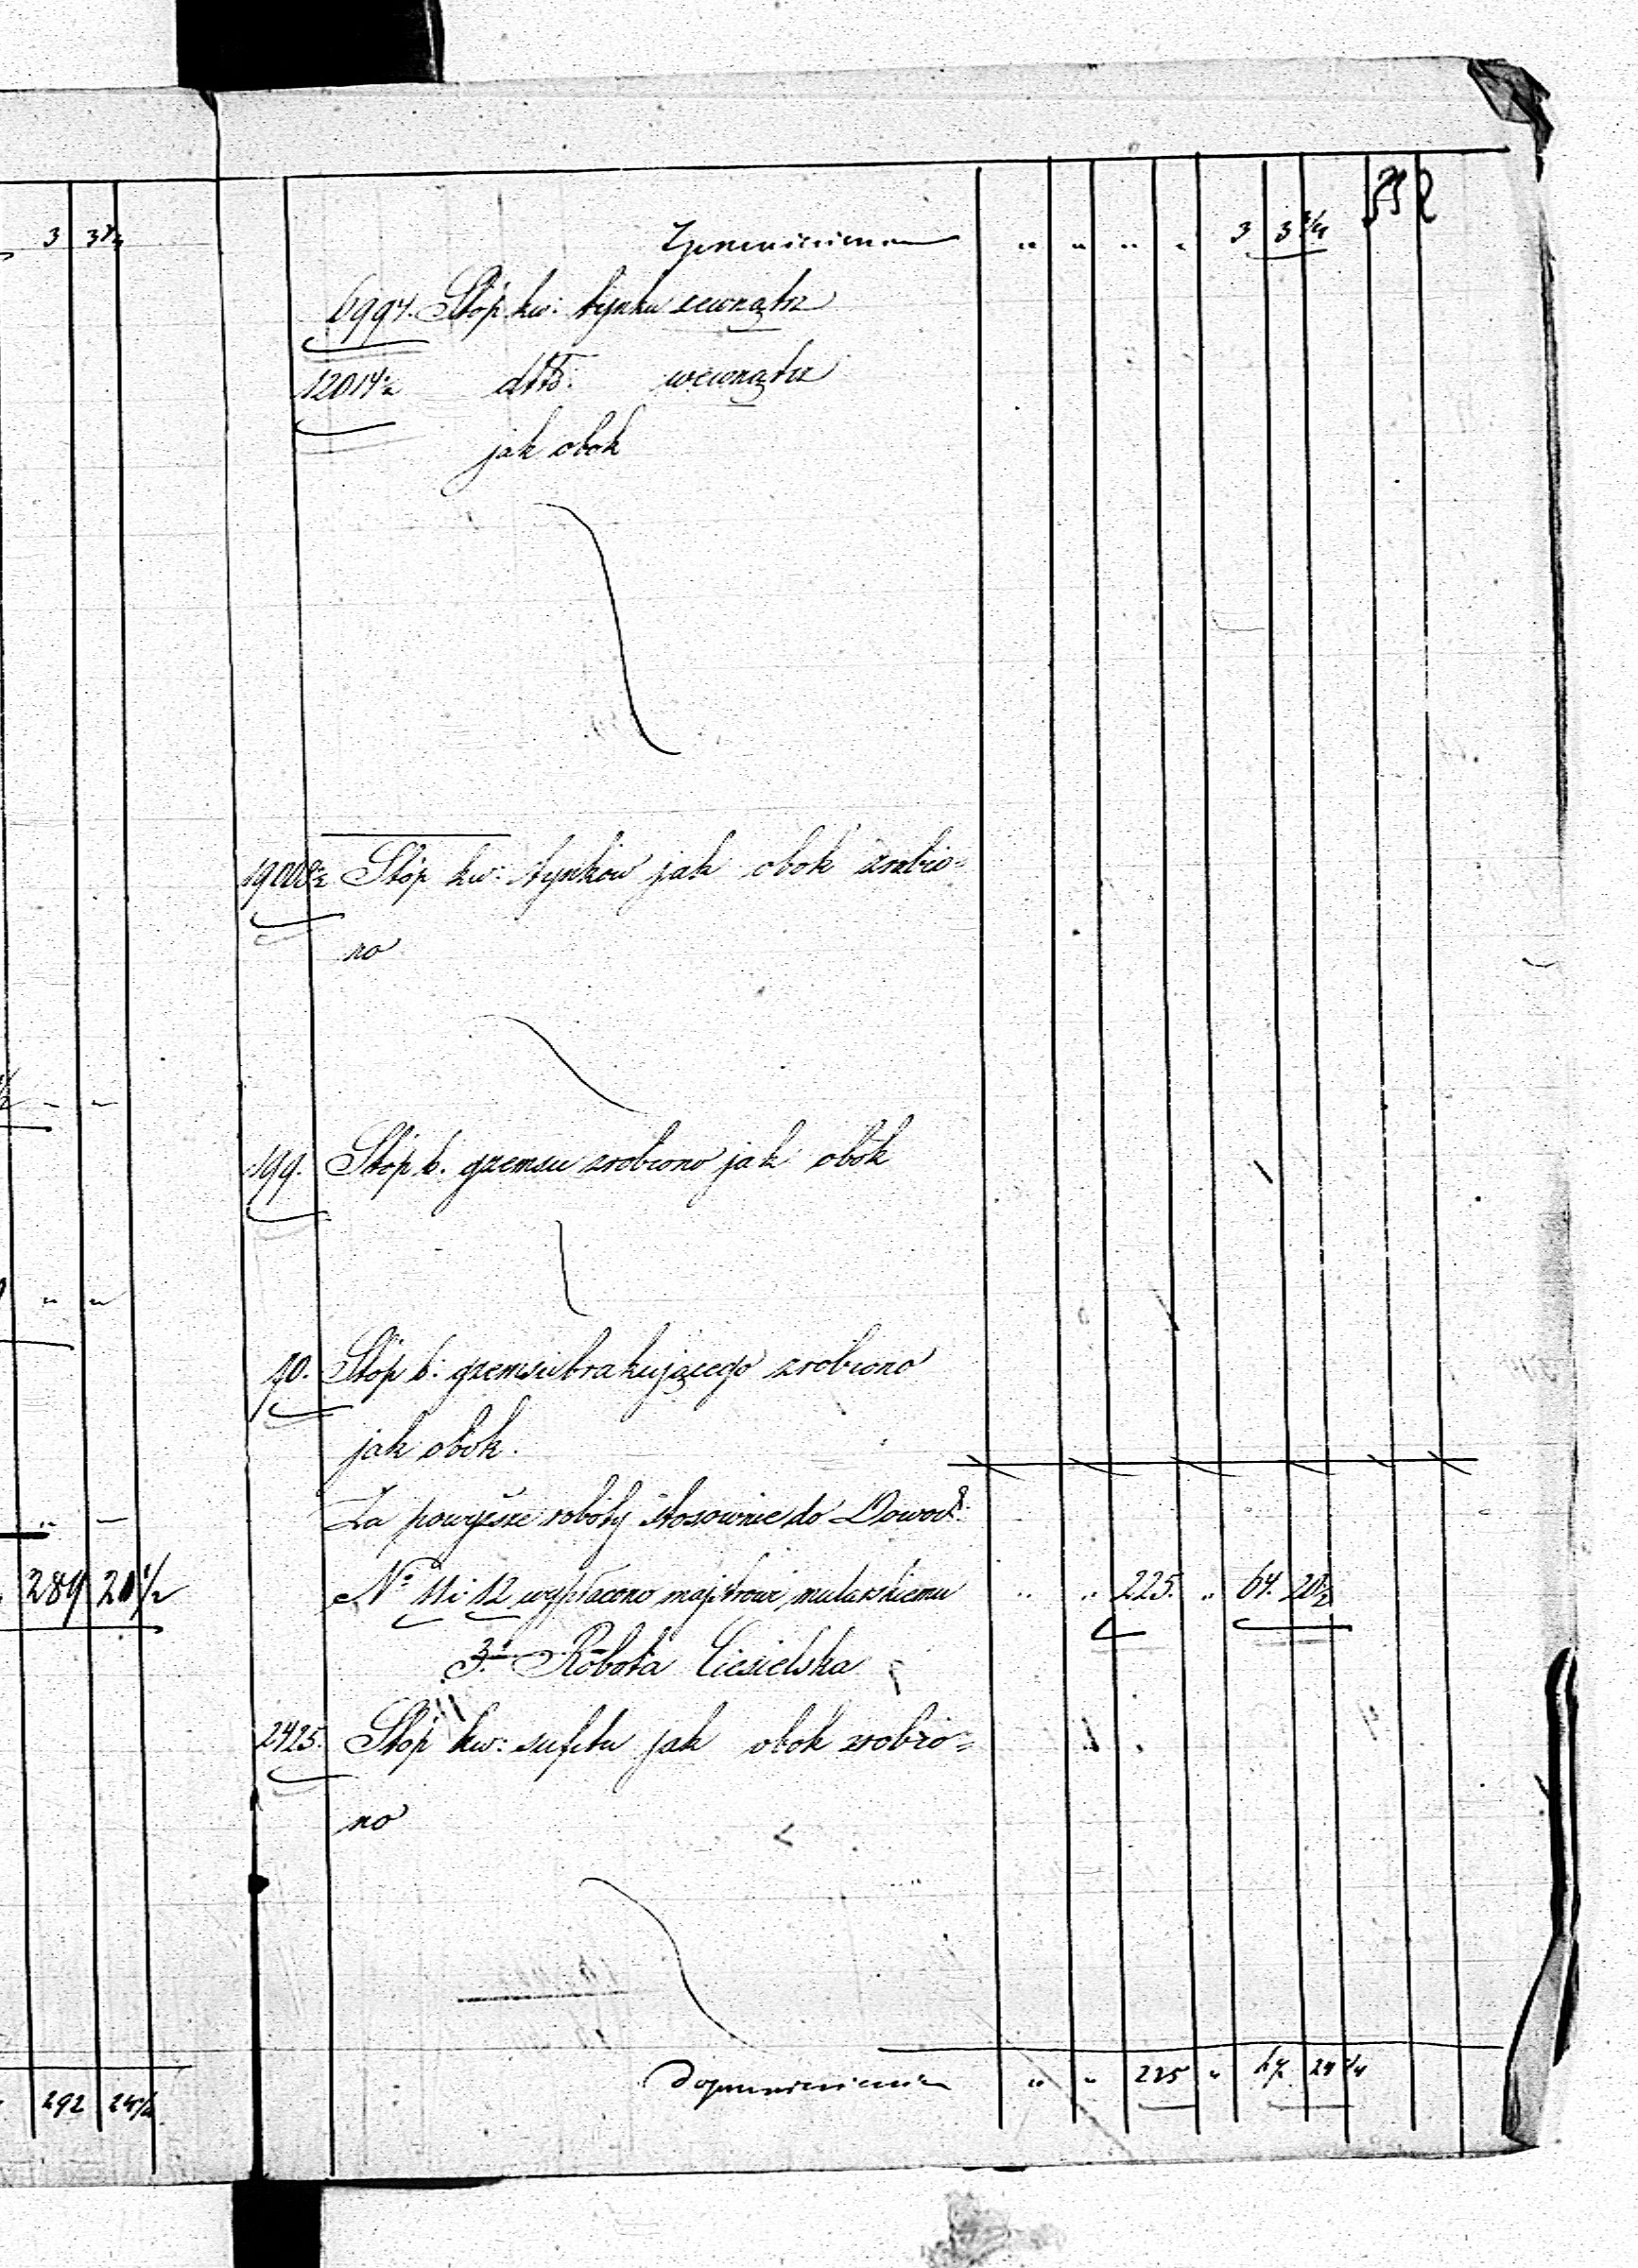 Zprzeniesienia " " " " 3 3 3/4
6994. Stóp kw: tynku zewnątrz
12014 1/2 dtto: wewnątrz
jak obok
19008 1/2 Stóp kw: tynków jak obok zrobio=
no
199. Stóp b. gzemsu zrobiono jak obok
70. Stóp b: gzemsu brakującego zrobiono
jak obok.
Za powyższe roboty stosownie do Dowod:
№ 11 i 12 wypłacono majstrowi mularskiemu " " 225. " 64. 20 1/2
3. Robota Ciesielska
2425. Stóp kw: sufitu jak obok zrobio=
no
Doprzeniesienia " " 225 " 67 24 1/4
3 3 3/4
289 20 1/2
292 24 1/4